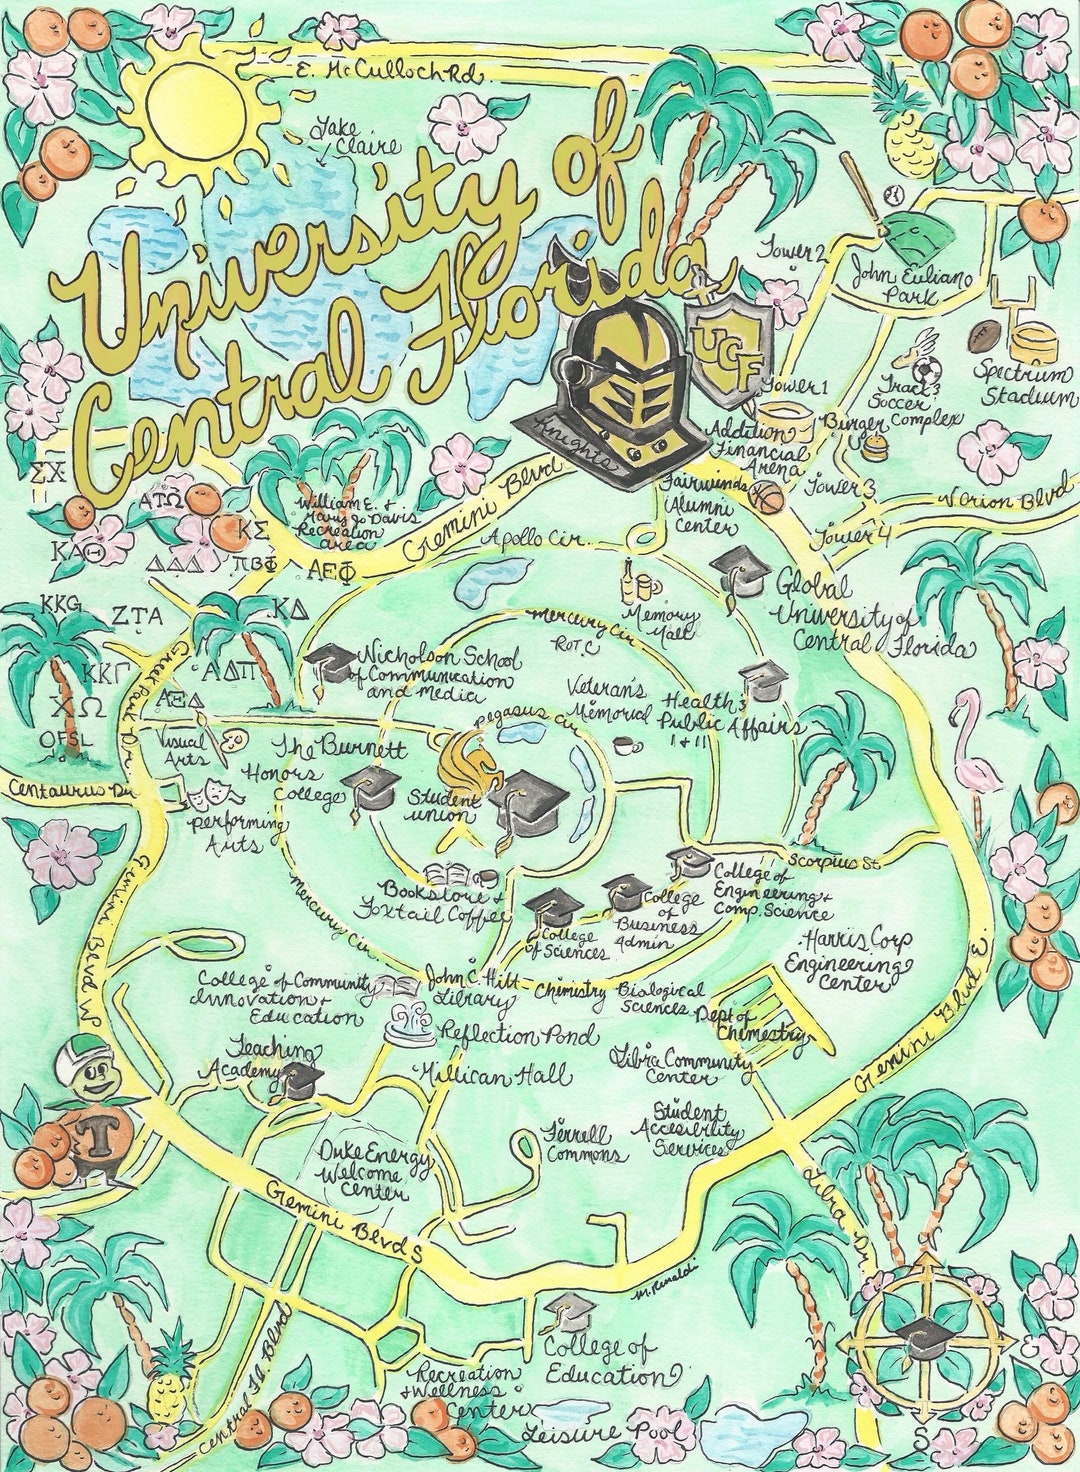 E. McCulloch Rd.
Lake
Claire
University of
Central Florida
Tower 2
John Euliano
Park
UCF
Knights
Tower 1
Track &
Soccer
Complex
Spectrum
Stadium
Addition
Financial
Arena
Burger
Fairwinds
Alumni
Center
Tower 3
Tower 4
Orion Blvd
ΣΧ
ΑΤΩ
ΚΣ
ΚΑΘ
ΔΔΔ
ΠΒΦ
ΑΕΦ
William E. +
Mary Jo Davis
Recreation
area
Gemini Blvd
Apollo Cir.
Memory
Mall
Global
University of
Central Florida
KKG
ZTA
ΚΔ
ΚΚΓ
ΑΔΠ
ΧΩ
ΑΞΔ
OFSL
Greek Park Dr.
Mercury Cir
ROTC
Nicholson School
of Communication
and media
Veteran's
Memorial
Health &
Public Affairs
I + II
Pegasus Cir
Visual
Arts
The Burnett
Honors
College
Student
union
Centaurus Dr.
performing
Arts
Gemini Blvd W
Mercury Cir
Bookstore +
Foxtail Coffee
College
of Sciences
College
of
Business
Admin
College of
Engineering +
Comp. Science
Scorpius St
Harris Corp
Engineering
Center
College of Community
Innovation +
Education
John C. Hitt
Library
Chemistry
Biological
Sciences
Dept of
Chemestry
Reflection Pond
Gemini Blvd E.
Teaching
Academy
Millican Hall
Libra Community
Center
T
Duke Energy
Welcome
Center
Ferrell
Commons
Student
Accesibility
Services
Gemini Blvd S
Libra Dr.
M. Rinaldi
College of
Education
Recreation
+ Wellness
Center
Leisure Pool
Central Fla Blvd
S